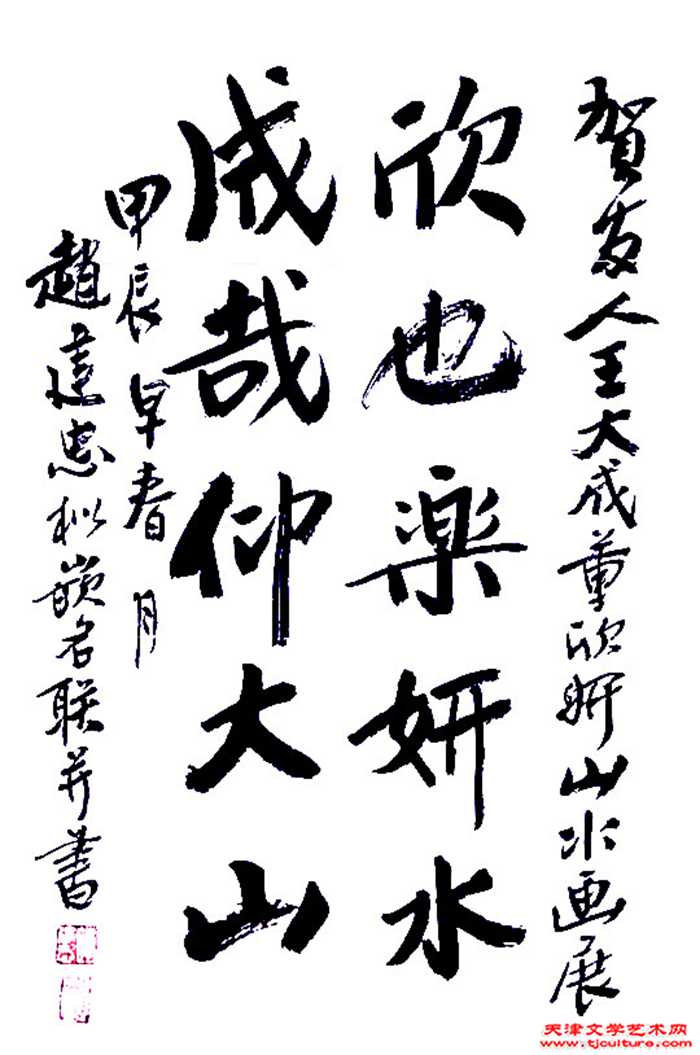 贺友人王大成董欣妍山水画展
欣也楽妍水
成哉仰大山
甲辰早春月
趙建忠拟嵌名联并書
天津文学艺术网
www.tjculture.com